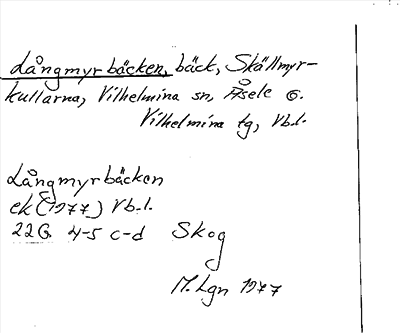 Långmyrbäcken, bäck, Skällmyr-
kullarna, Vilhelmina sn, Åsele G.
Vilhelmina tg, Vb.l.
Långmyrbäcken
ek (1977) Vb.l.
22G 4-5 c-d Skog
M. Lgn 1977